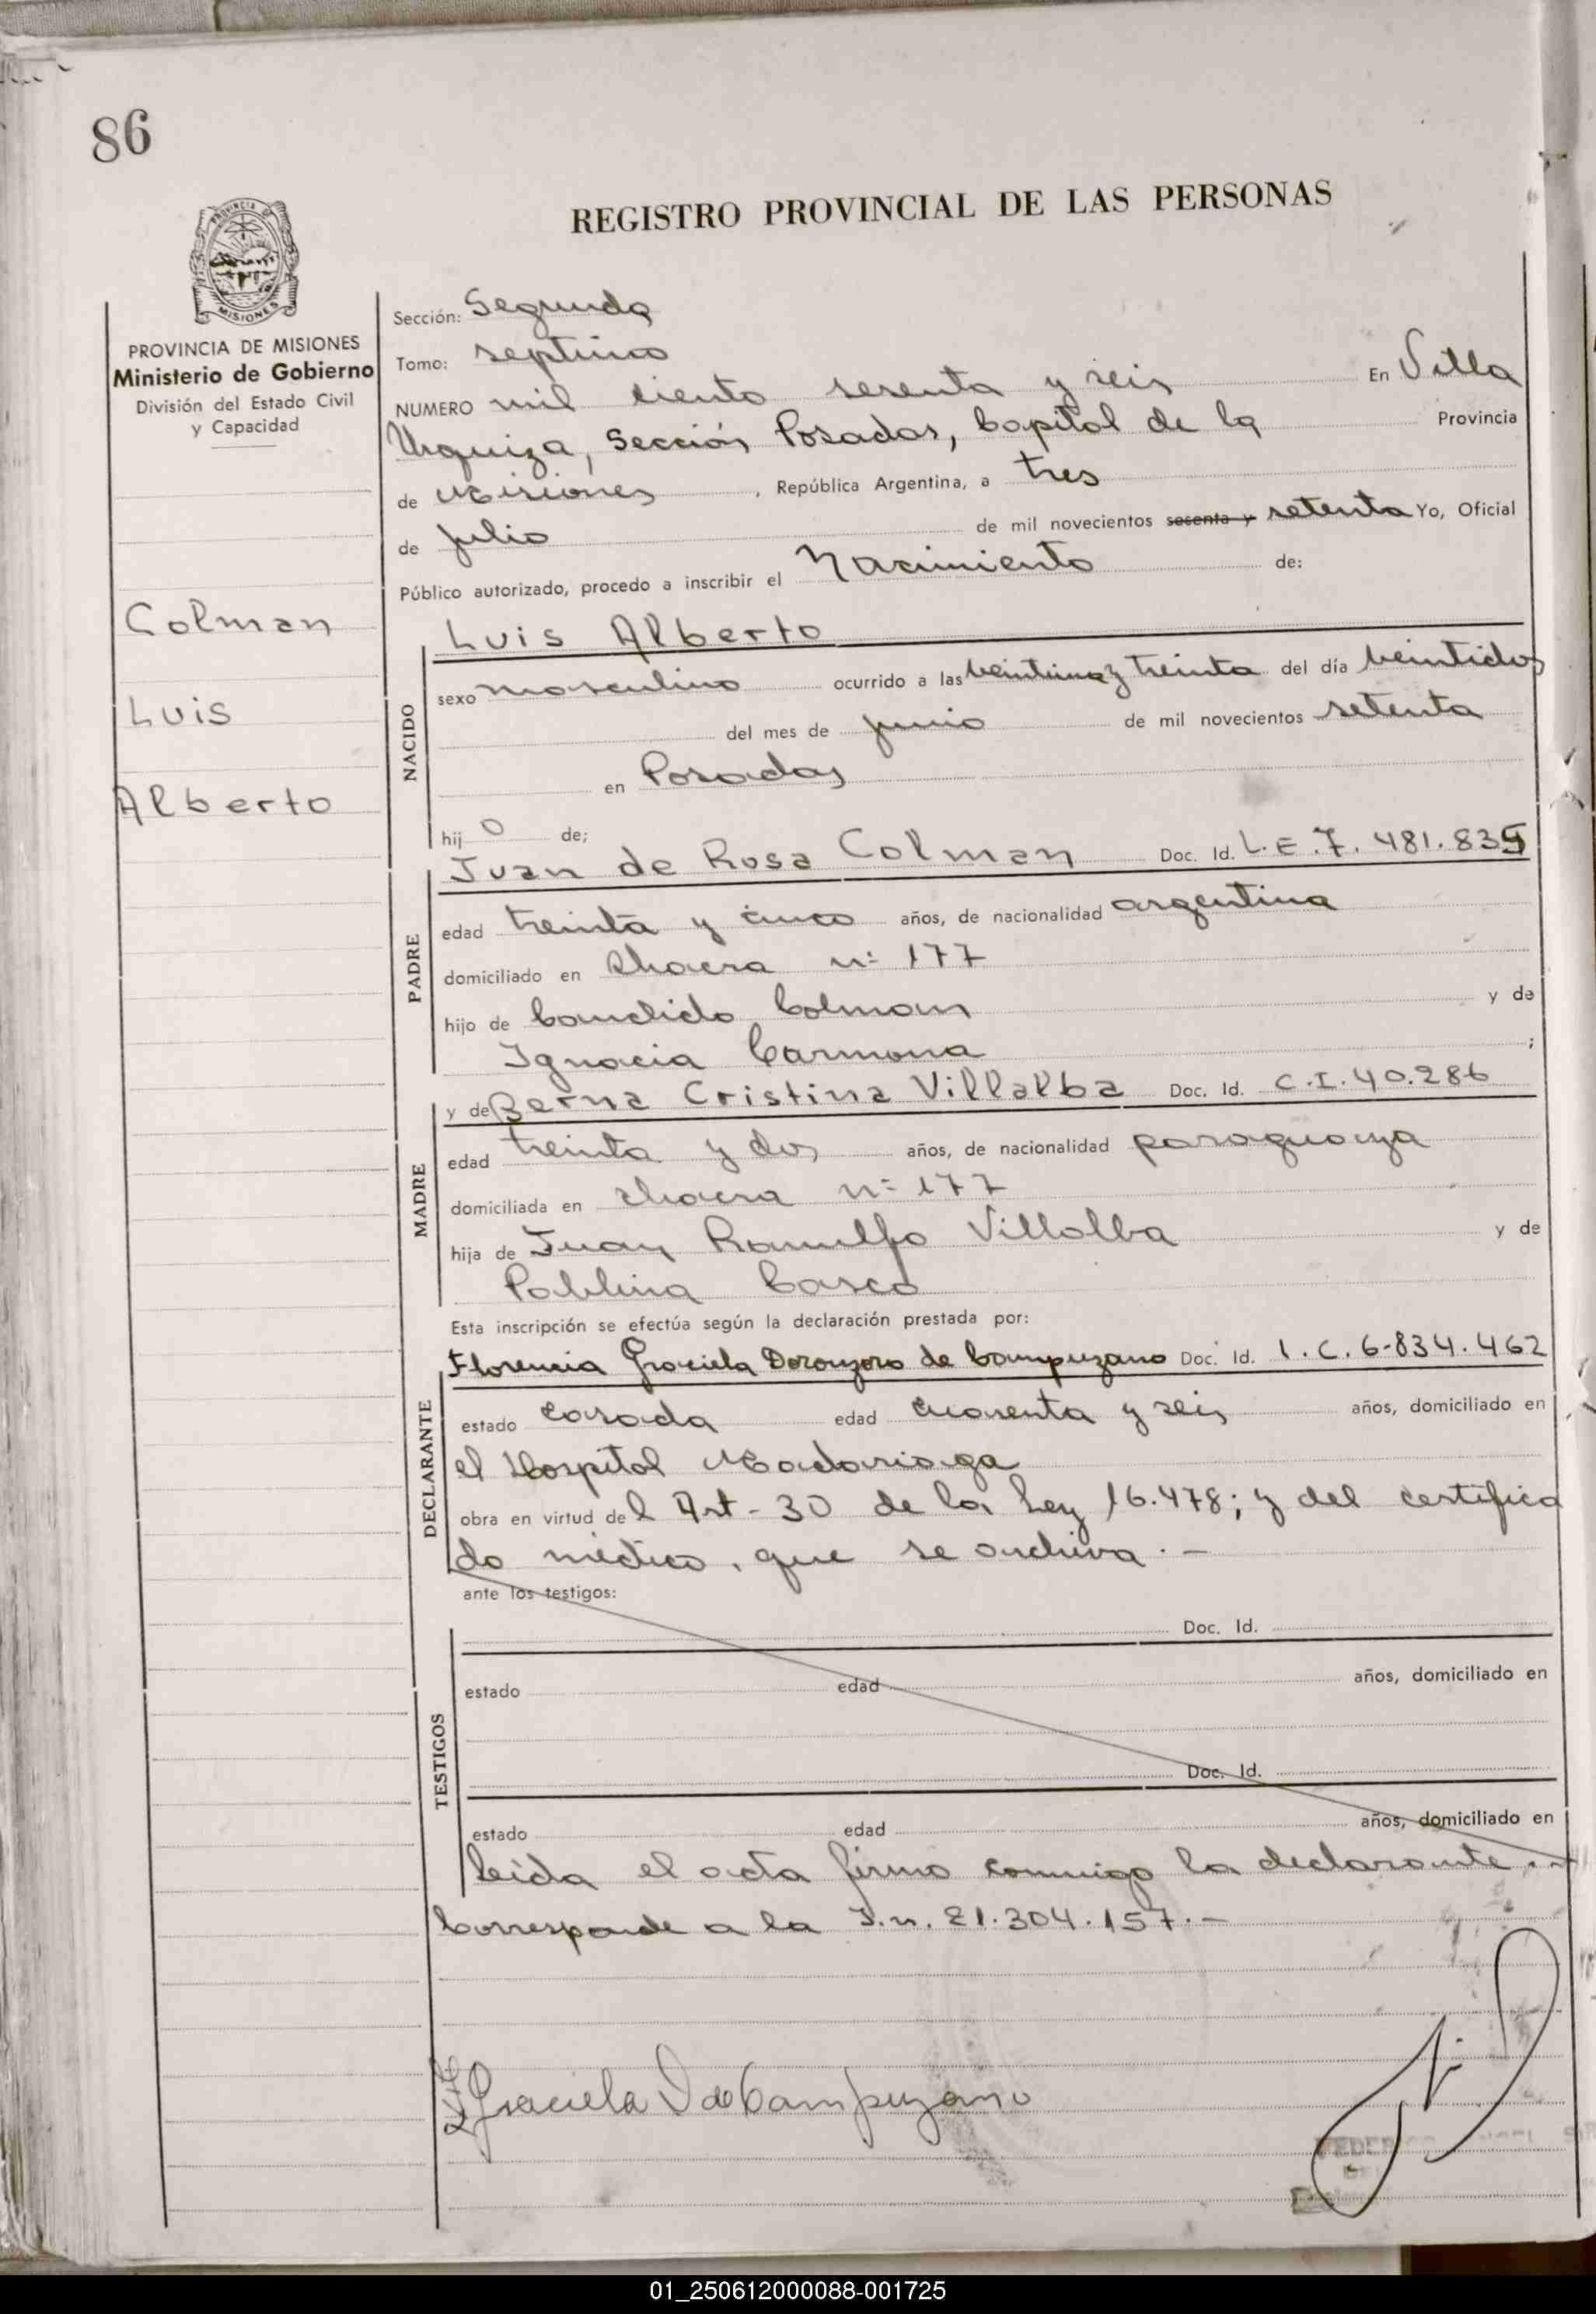 86
REGISTRO PROVINCIAL DE LAS PERSONAS
PROVINCIA DE MISIONES
Ministerio de Gobierno
División del Estado Civil
y Capacidad
Colman
Luis
Alberto
Sección: Segunda
Tomo: septimo
NUMERO mil ciento sesenta y seis En Villa
Urquiza, Sección Posadas, Capital de la Provincia
de Misiones, República Argentina, a tres
de julio de mil novecientos sesenta y setenta Yo, Oficial
Público autorizado, procedo a inscribir el Nacimiento de:
NACIDO
Luis Alberto
sexo masculino ocurrido a las veintiuna y treinta del día veintidos
del mes de junio de mil novecientos setenta
en Posadas
hijo de;
PADRE
Juan de Rosa Colman Doc. Id. L.E. 7.481.835
edad treinta y cinco años, de nacionalidad argentina
domiciliado en chacra n: 177
hijo de Candido Colman y de
Ignacia Carmona ;
MADRE
y de Berna Cristina Villalba Doc. Id. C.I. 40.286
edad treinta y dos años, de nacionalidad paraguaya
domiciliada en chacra n: 177
hija de Juan Ramulfo Villalba y de
Pablina Casco
Esta inscripción se efectúa según la declaración prestada por:
DECLARANTE
Florencia Graciela de Campuzano Doc. Id. I.C. 6.834.462
estado casada edad cuarenta y seis años, domiciliado en
el Hospital Madariaga
obra en virtud del Art- 30 de la Ley 16.478; y del certifica
do médico, que se archiva.-
ante los testigos:
TESTIGOS
Doc. Id.
estado edad años, domiciliado en
Doc. Id.
estado edad años, domiciliado en
leida el acta firma conmigo la declarante.-
Corresponde a la I.n. 21.304.157.-
Graciela D de Campuzano
01_250612000088-001725